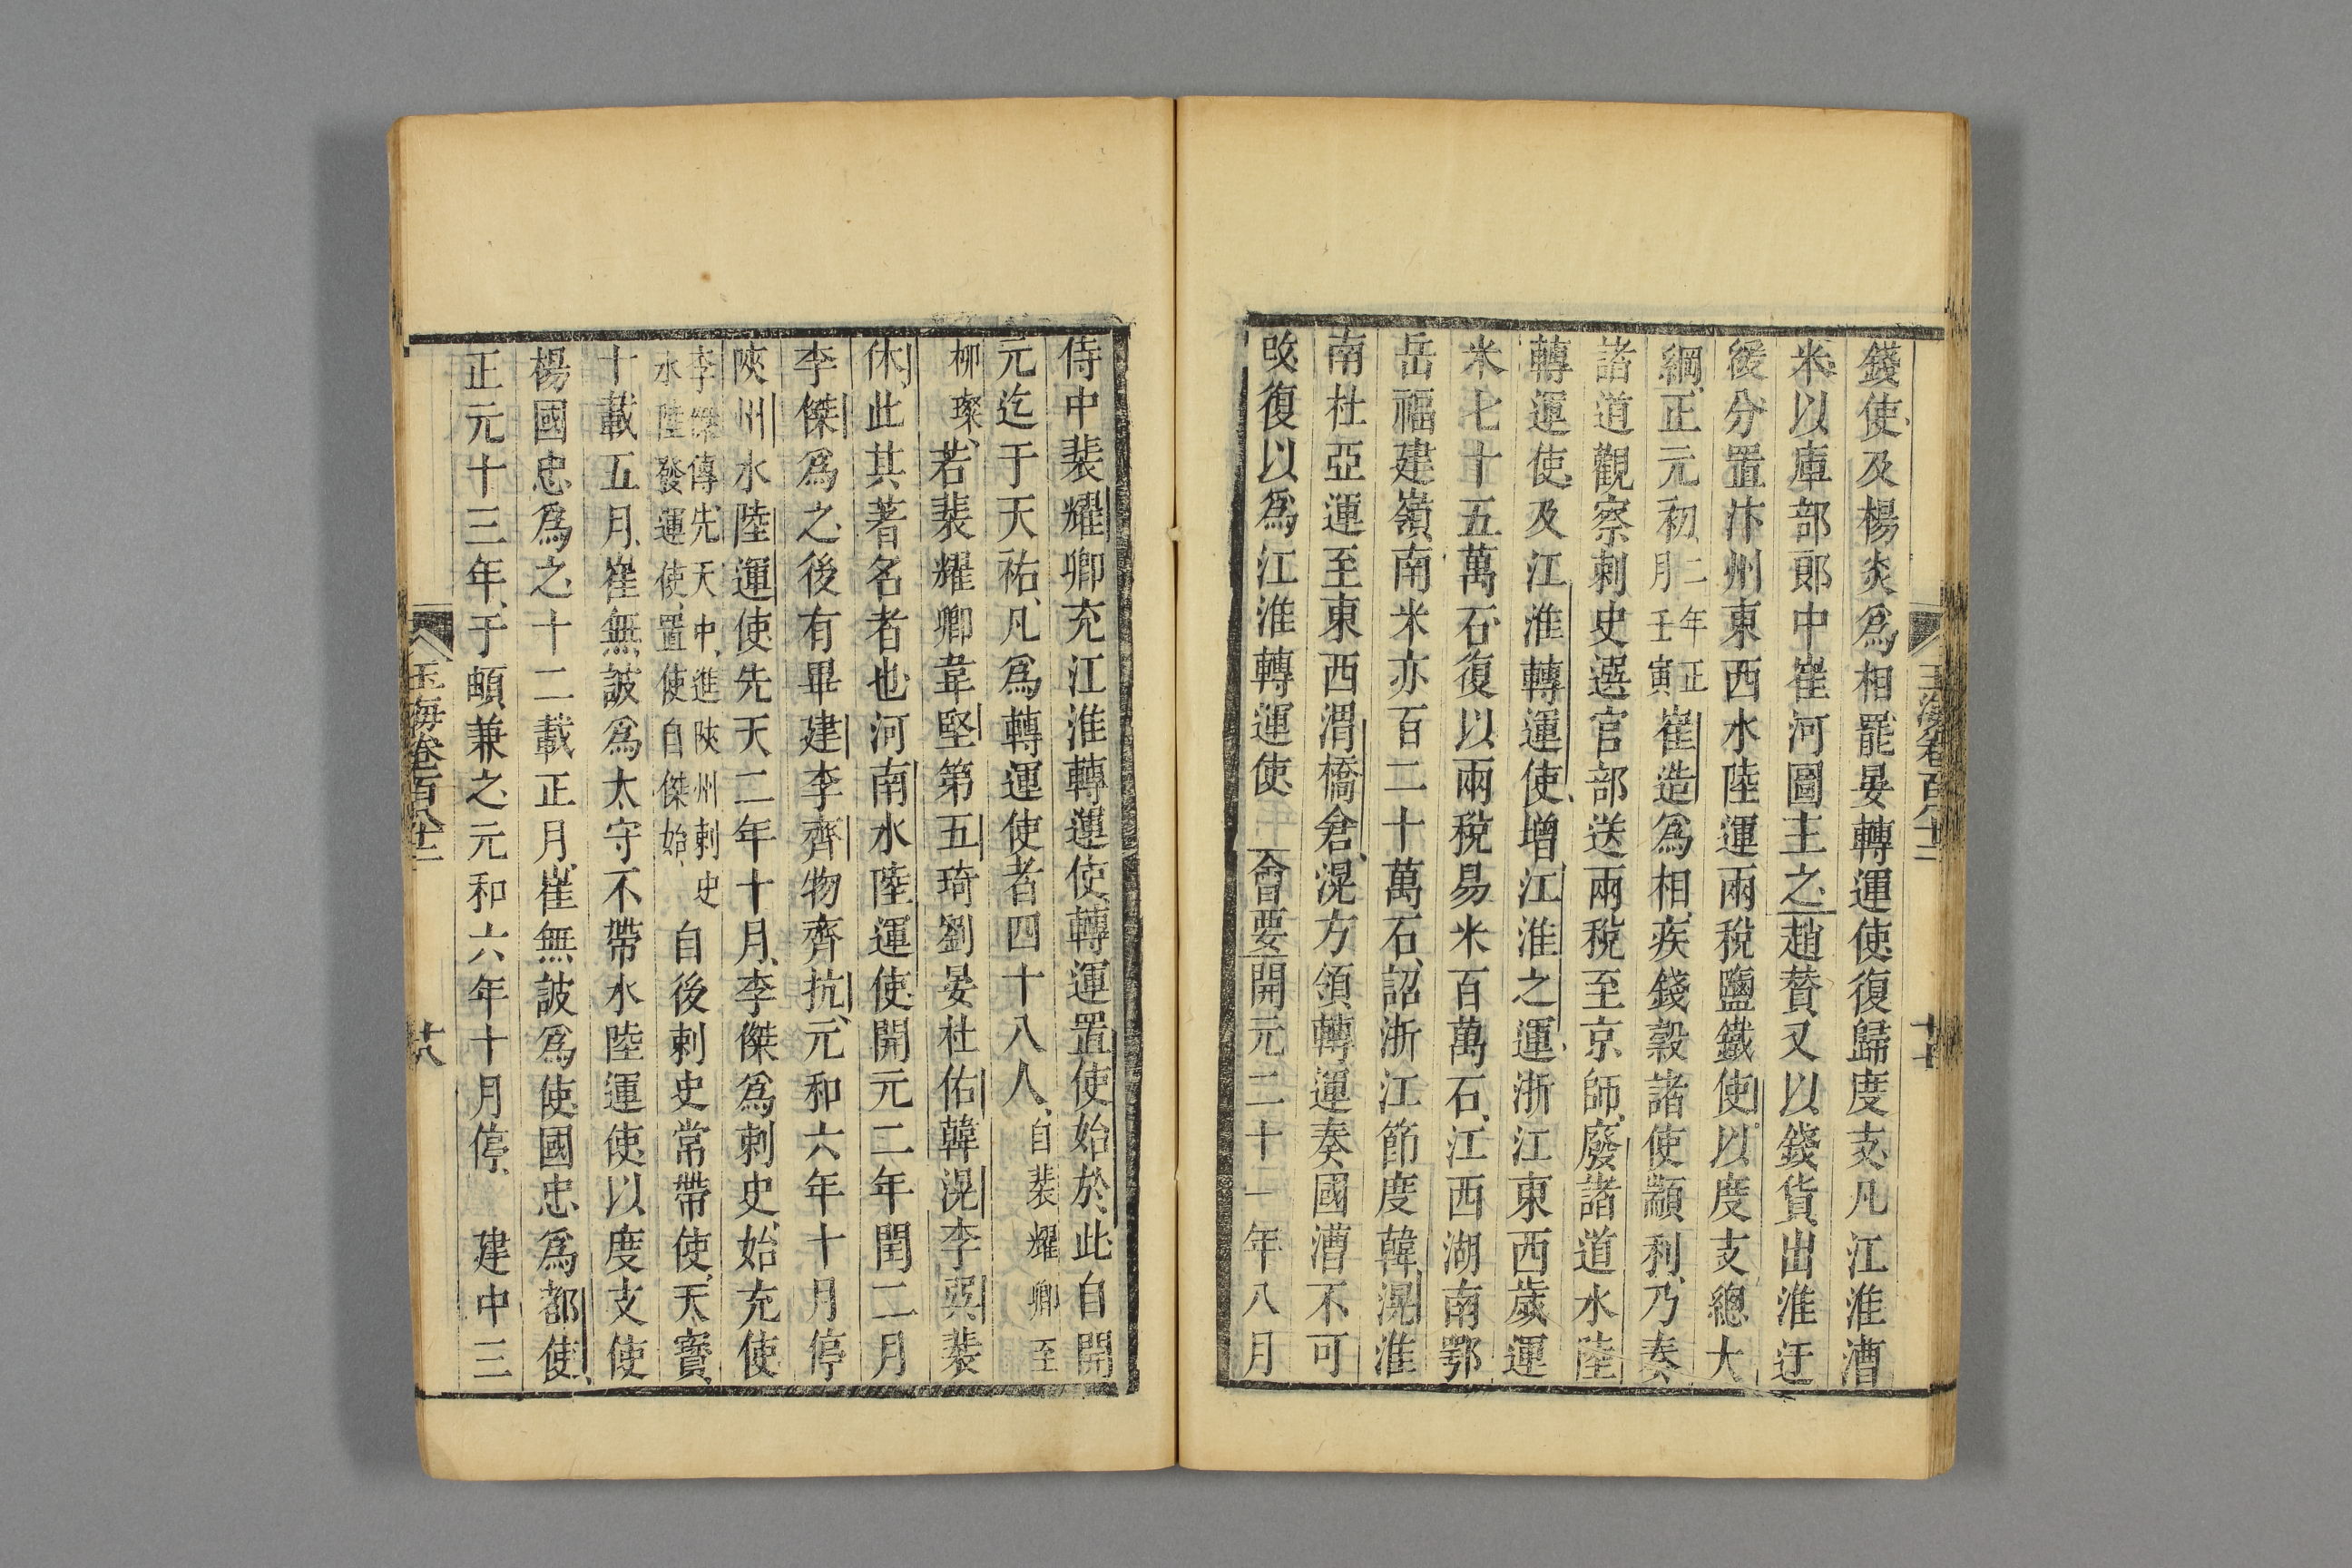 錢使及楊炎爲相罷晏轉運使復歸度支凡江淮漕
米以庫部郎中崔河圖主之趙贊又以錢貨出淮迂
緩分置汴州東西水陸運兩稅鹽鐵使以度支總大
綱正元初二年正月壬寅崔造爲相疾錢穀諸使顓利乃奏
諸道觀察刺史選官部送兩稅至京師廢諸道水陸
轉運使及江淮轉運使增江淮之運浙江東西歲運
米七十五萬石復以兩稅易米百萬石江西湖南鄂
岳福建嶺南米亦百二十萬石詔浙江節度韓滉淮
南杜亞運至東西渭橋倉滉方領轉運奏國漕不可
改復以爲江淮轉運使 會要開元二十一年八月
玉海卷百八十二 十七
侍中裴耀卿充江淮轉運使轉運置使始於此自開
元迄于天祐凡爲轉運使者四十八人自裴耀卿至
柳璨若裴耀卿韋堅第五琦劉晏杜佑韓滉李巽裴
休此其著名者也河南水陸運使開元二年閏二月
李傑爲之後有畢建李齊物齊抗元和六年十月停
陝州水陸運使先天二年十月李傑爲刺史始充使
李傑傳先天中進陝州刺史水陸發運使置使自傑始自後刺史常帶使天寶
十載五月崔無詖爲太守不帶水陸運使以度支使
楊國忠爲之十二載正月崔無詖爲使國忠爲都使
正元十三年于頔兼之元和六年十月停 建中三
玉海卷百八十二 十八